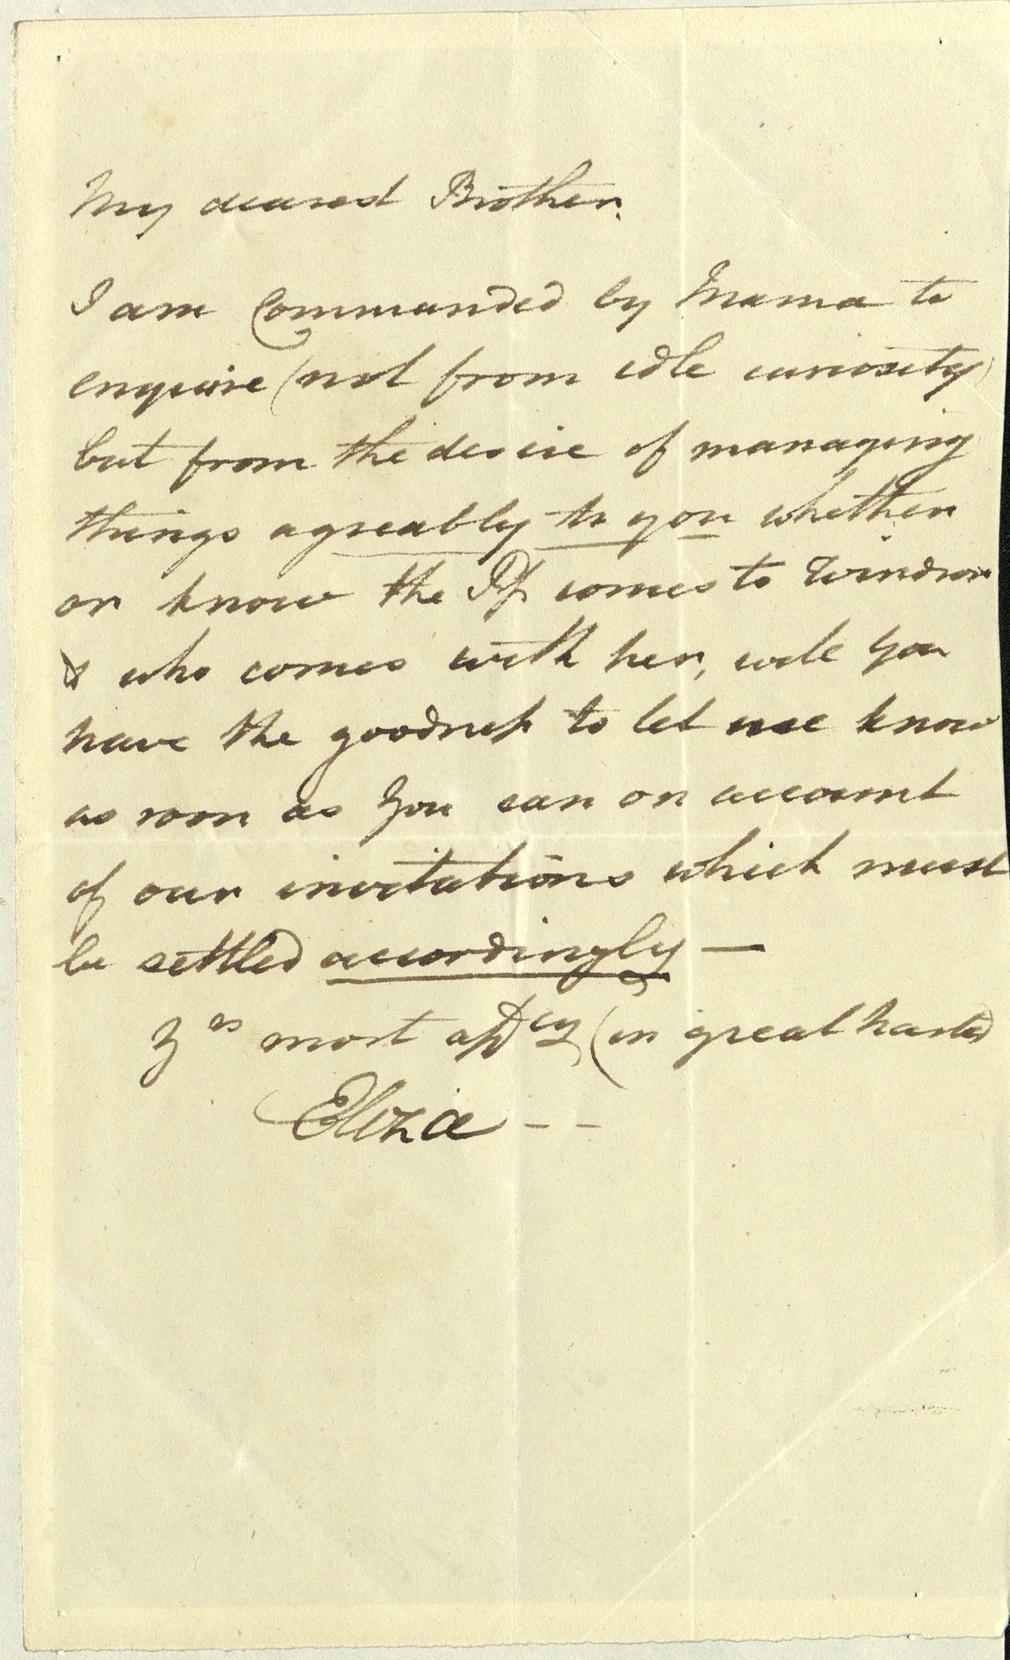 My dearest Brother.
I am Commanded by Mama to
enquire (not from idle curiosity)
but from the desire of managing
things agreably to you whether
or know the Ps comes to Windsor
& who comes with her, will you
have the goodness to let me know
as soon as you can on account
of our invitations which must
be settled accordingly —
Yrs most affly (in great haste)
Eliza - -